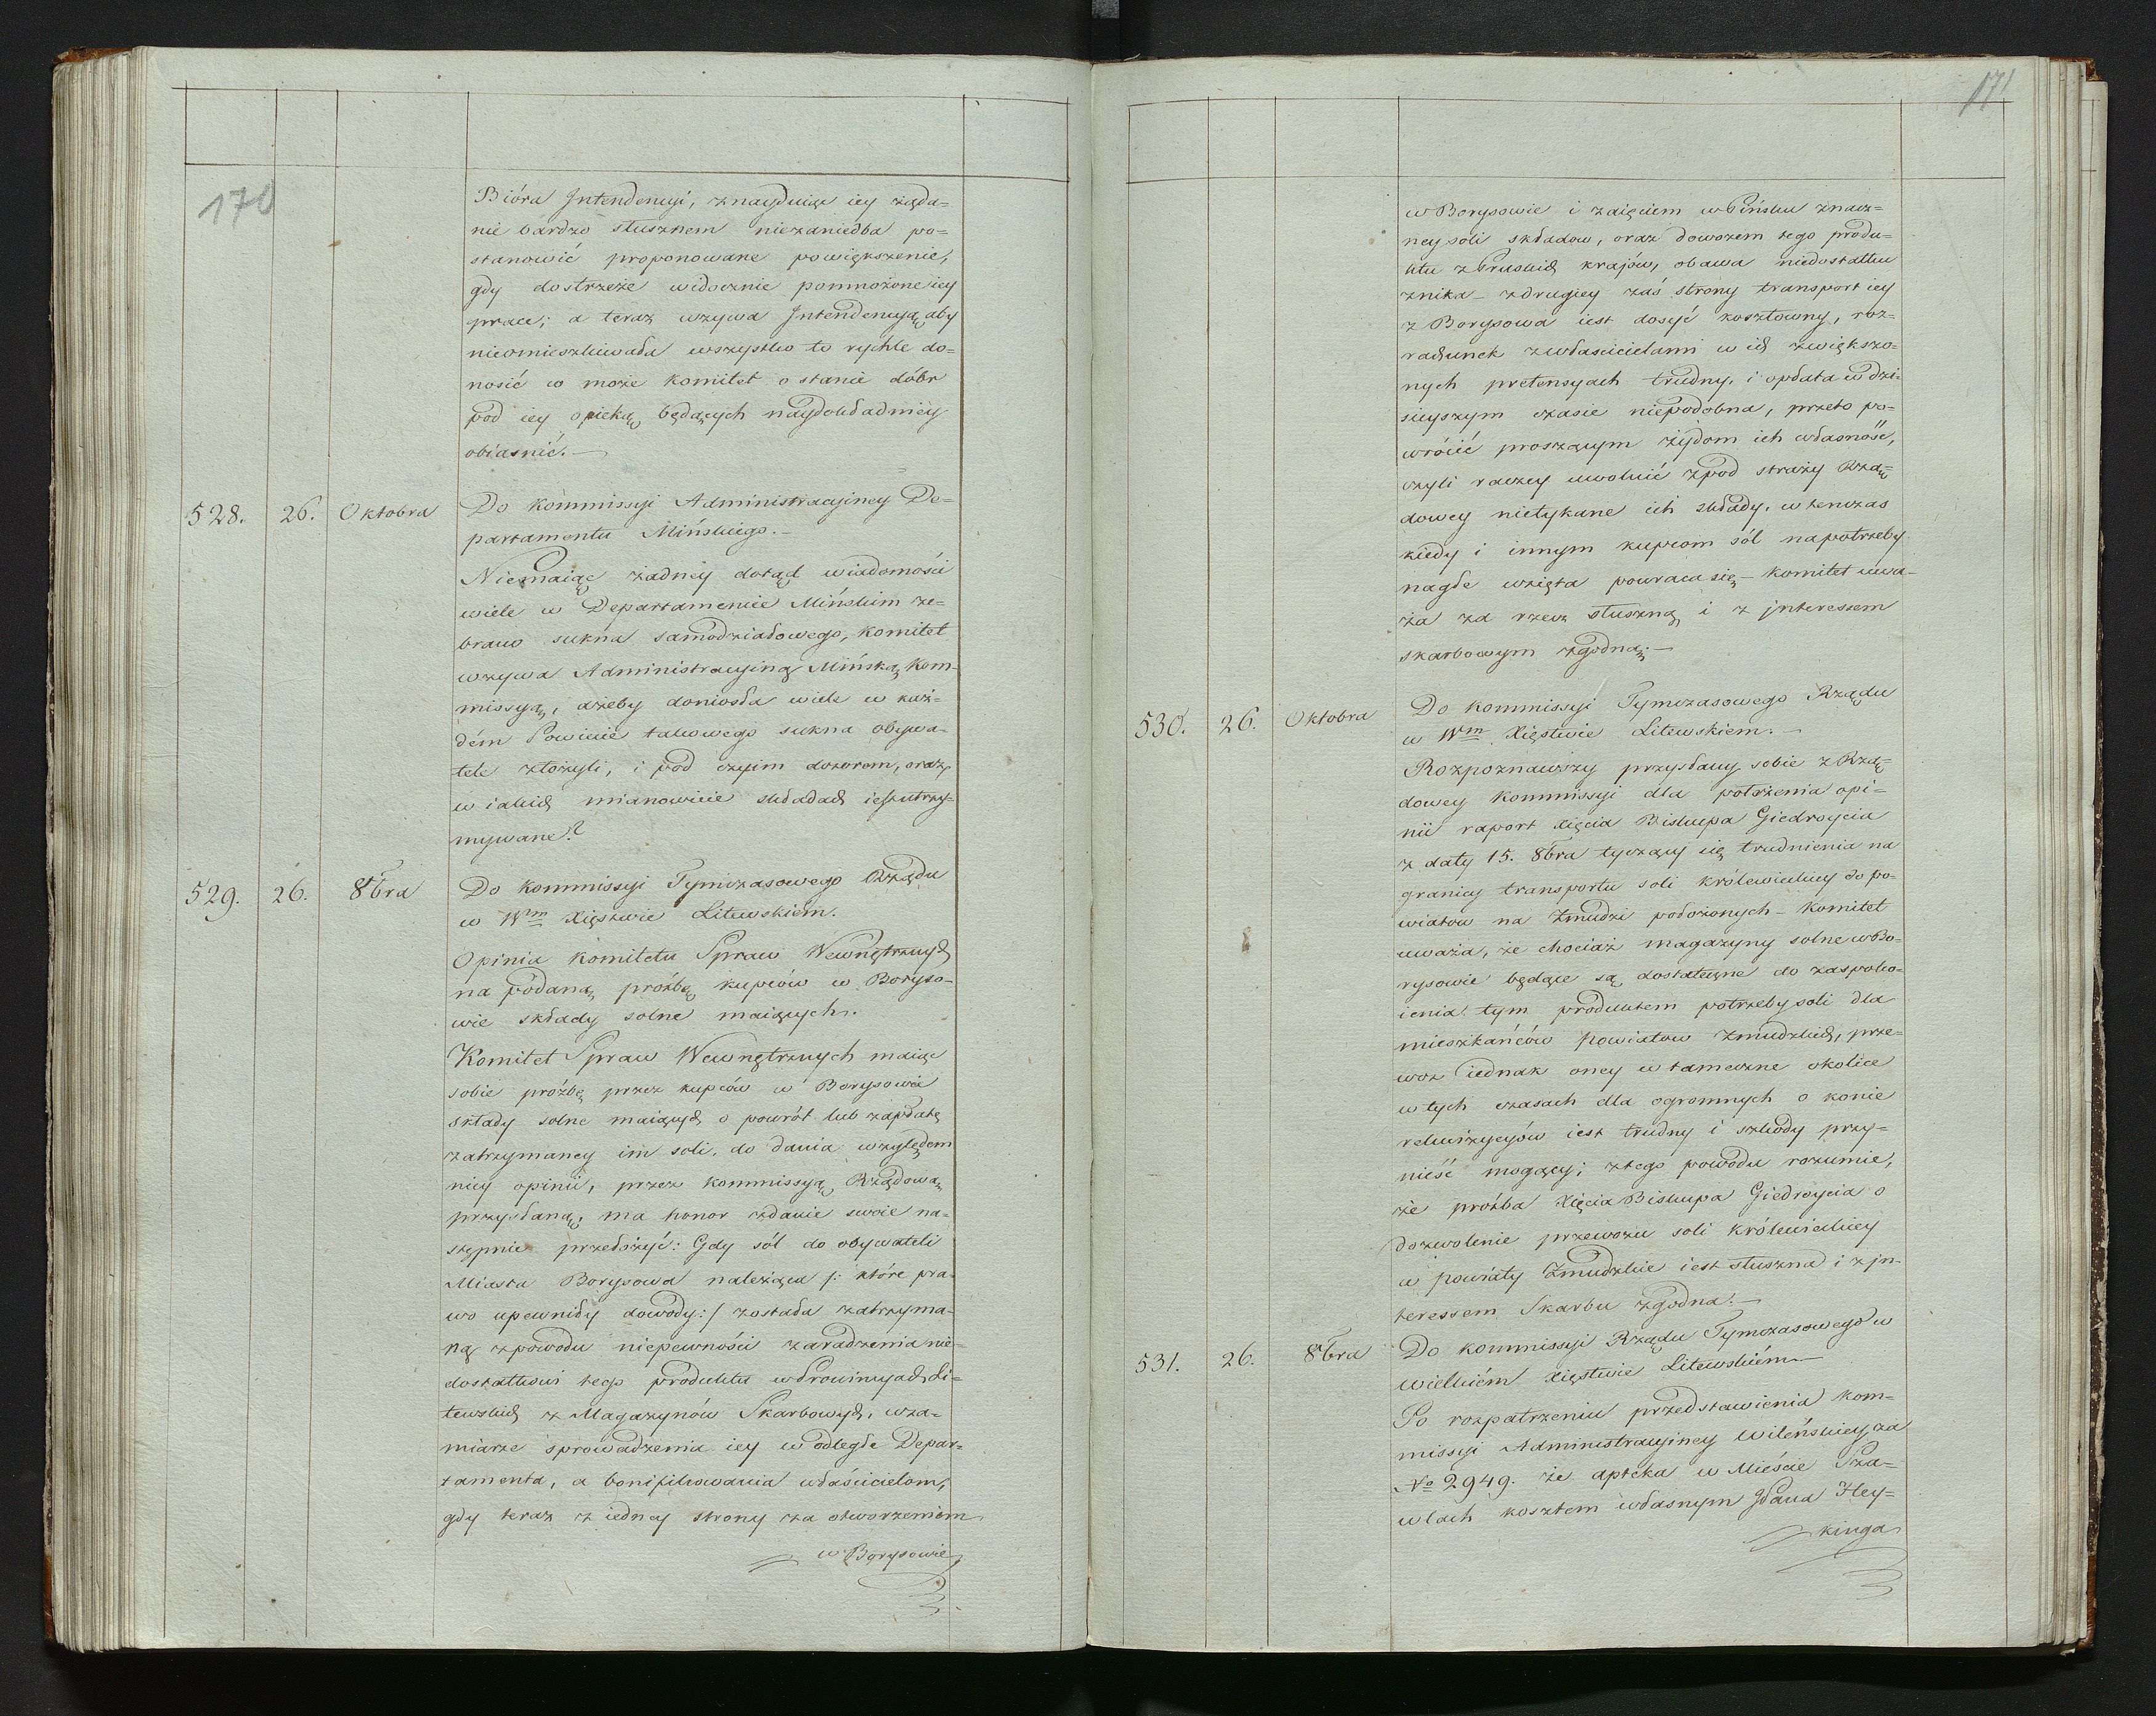 170
Bióra Intendencyi, znayduiąc iey żąda=
nie bardzo słusznem niezaniedba po=
stanowić proponowane powiększenie,
gdy dostrzeże widocznie pomnożone iey
prace; a teraz wzywa Intendencyą, aby
nieomieszkiwała wszystko to rychle do=
nosić co może Komitet o stanie dóbr
pod iey opieką będących naydokładniey
obiasnić.—
528. 26. Oktobra Do Kommissyi Administracyiney De=
partamentu Mińskiego.—
Niemaiąc żadney dotąd wiadomości
wiele w Departamencie Mińskim ze=
brano sukna samodziałowego, Komitet
wzywa Administracyiną Mińską Kom-
missyą, ażeby doniosła wiele w każ=
dém Powiecie takowego sukna obywa=
tele złożyli, i pod czyim dozorem, oraz
w iakich mianowicie składach iest utrzy=
mywane?
529. 26. 8bra Do Kommissyi Tymczasowego Rządu
w Wm Xięstwie Litewskiem.
Opinia Komitetu Spraw Wewnętrznych
na podaną prózbę kupców w Boryso-
wie składy solne maiących.
Komitet Spraw Wewnętrznych maiąc
sobie prózbę przez kupców w Borysowie
składy solne maiących o powrót lub zapłatę
zatrzymaney im soli, do dania względem
niey opinii, przez Kommissyą Rządową
przysłaną, ma honor zdanie swoie na=
stępnie przedłożyć: Gdy sól do obywateli
Miasta Borysowa należąca /: które pra-
wo upewniły dowody:/ została zatrzyma-
ną z powodu niepewności zaradzenia nie=
dostatkowi tego produktu w Prowincyach Li=
tewskich z Magazynów Skarbowych, w za=
miarze sprowadzenia iey w odległe Depar=
tamenta, a bonifikowania właścicielom,
gdy teraz z iedney strony za otworzeniem
w Borysowie
171
w Borysowie i zaięciem w Pińsku znacz=
ney soli składow, oraz dowozem tego produ=
ktu z Pruskich krajów, obawa niedostatku
znika – z drugiey zaś strony transport iey
z Borysowa iest dosyć kosztowny, roz=
rachunek z właścicielami w ich zwiększo=
nych pretensyach trudny, i opłata w dzi=
sieyszym czasie niepodobna, przeto po=
wrócić proszącym żydom ich własność,
czyli raczey uwolnić z pod straży Rzą=
dowey nietykane ich składy, w tenczas
kiedy i innym kupcom sól na potrzeby
nagłe wzięta powraca się – Komitet uwa-
ża za rzecz słuszną i z jnteressem
skarbowym zgodną.—
530. 26. Oktobra Do Kommissyi Tymczasowego Rządu
w Wm Xięstwie Litewskiem.—
Rozpoznawszy przysłany sobie z Rzą=
dowey Kommissyi dla położenia opi=
nii raport Xięcia Biskupa Giedroycia
z daty 15. 8bra tyczący się trudnienia na
granicy transportu soli królewieckiey do po=
wiatow na Żmudzi położonych – Komitet
uważa, że chociaż magazyny solne w Bo=
rysowie będące są dostateczne do zaspoko=
ienia tym produktem potrzeby soli dla
mieszkańców powiatow Żmudzkich, prze=
woz iednak oney w tameczne okolice
w tych czasach dla ogromnych o konie
rekwizycyów iest trudny i szkody przy=
nieść mogący; z tego powodu rozumie,
że prośba Xięcia Biskupa Giedroycia o
dozwolenie przewozu soli królewieckiey
w powiaty Żmudzkie iest słuszna i z jn-
teressem Skarbu zgodna.—
531. 26. 8bra Do Kommissyi Rządu Tymczasowego w
Wielkiém Xięstwie Litewskiém.—
Po rozpatrzeniu przedstawienia Kom=
missyi Administracyiney Wileńskiey za
No 2949. że apteka w Mieście Sza=
wlach kosztem własnym JPana Hey=
kinga